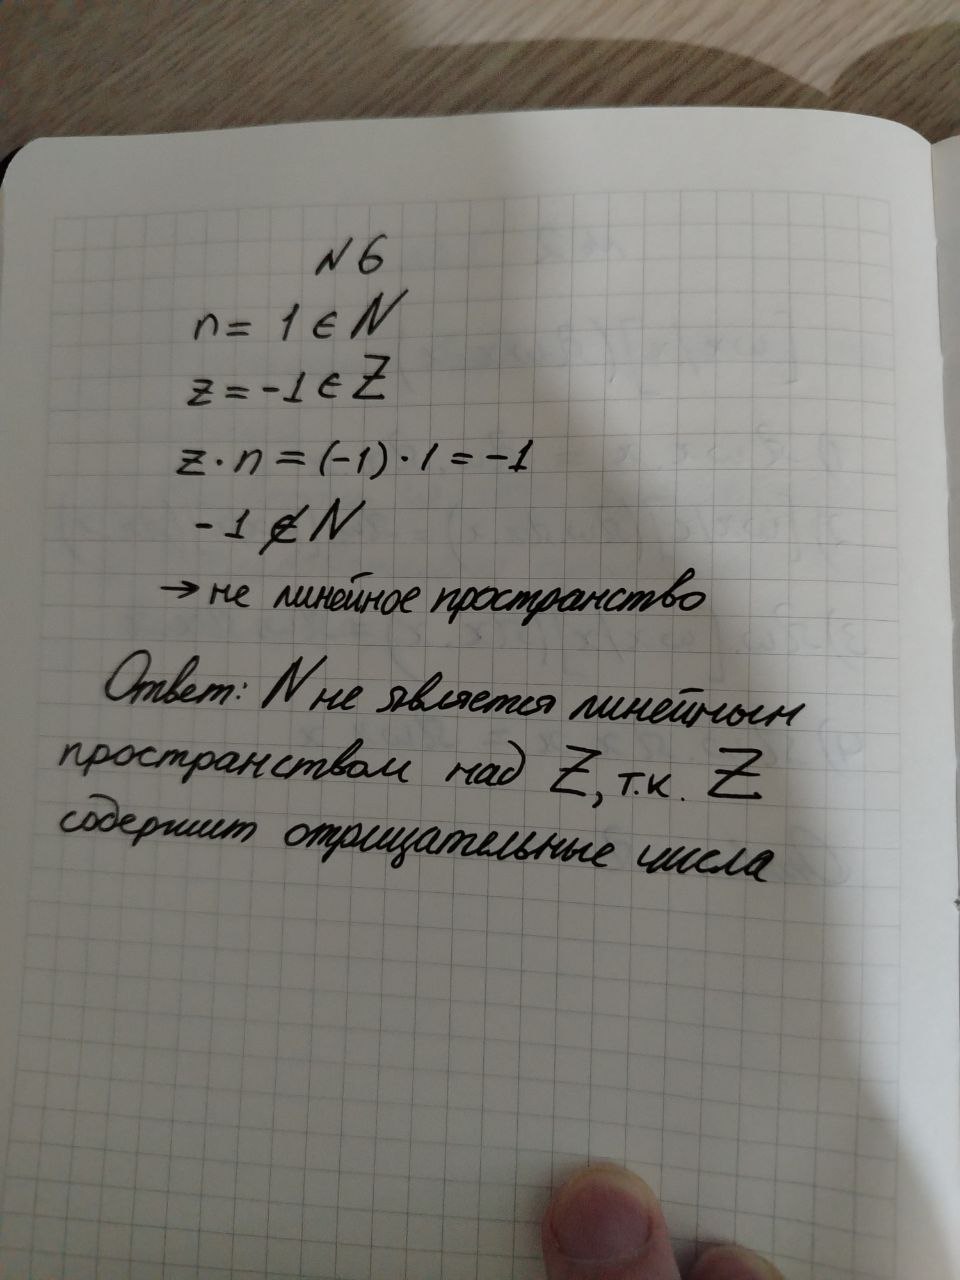 N 6
n = 1 ∈ N
z = -1 ∈ Z
z · n = (-1) · 1 = -1
-1 ∉ N
→ не линейное пространство
Ответ: N не является линейным
пространством над Z, т.к. Z
содержит отрицательные числа